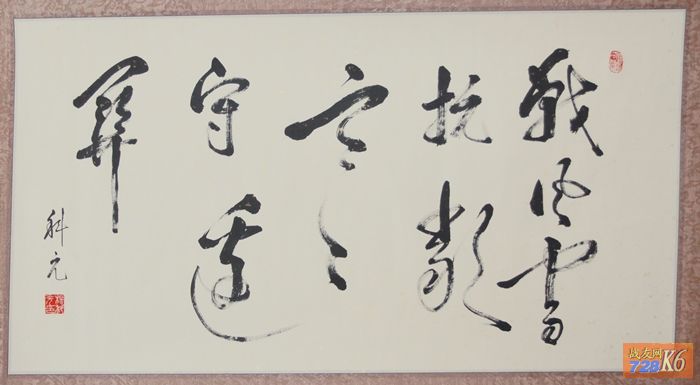 戰風雪
抗嚴
寒
守邊
關
科元
战友网
728K6